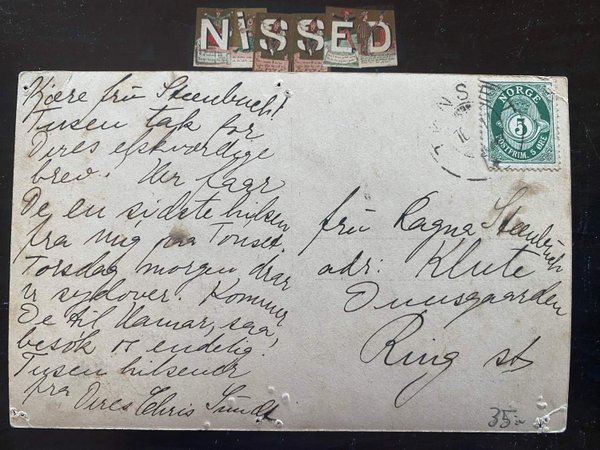 NiSSED
Kjære fru Steenbuch!
Tusen tak for
Deres elskværdige
brev. Her faar
De en sidste hilsen
fra mig paa Tonset.
Torsdag morgen drar
vi sydover. Kommer
De til Hamar, saa
besøk os endelig.
Tusen hilsener
fra Deres Chris Sundt
NORGE
5
POSTFRIM. 5 ØRE
fru Ragna Steenbuch
adr: Klute
Ring st
35-